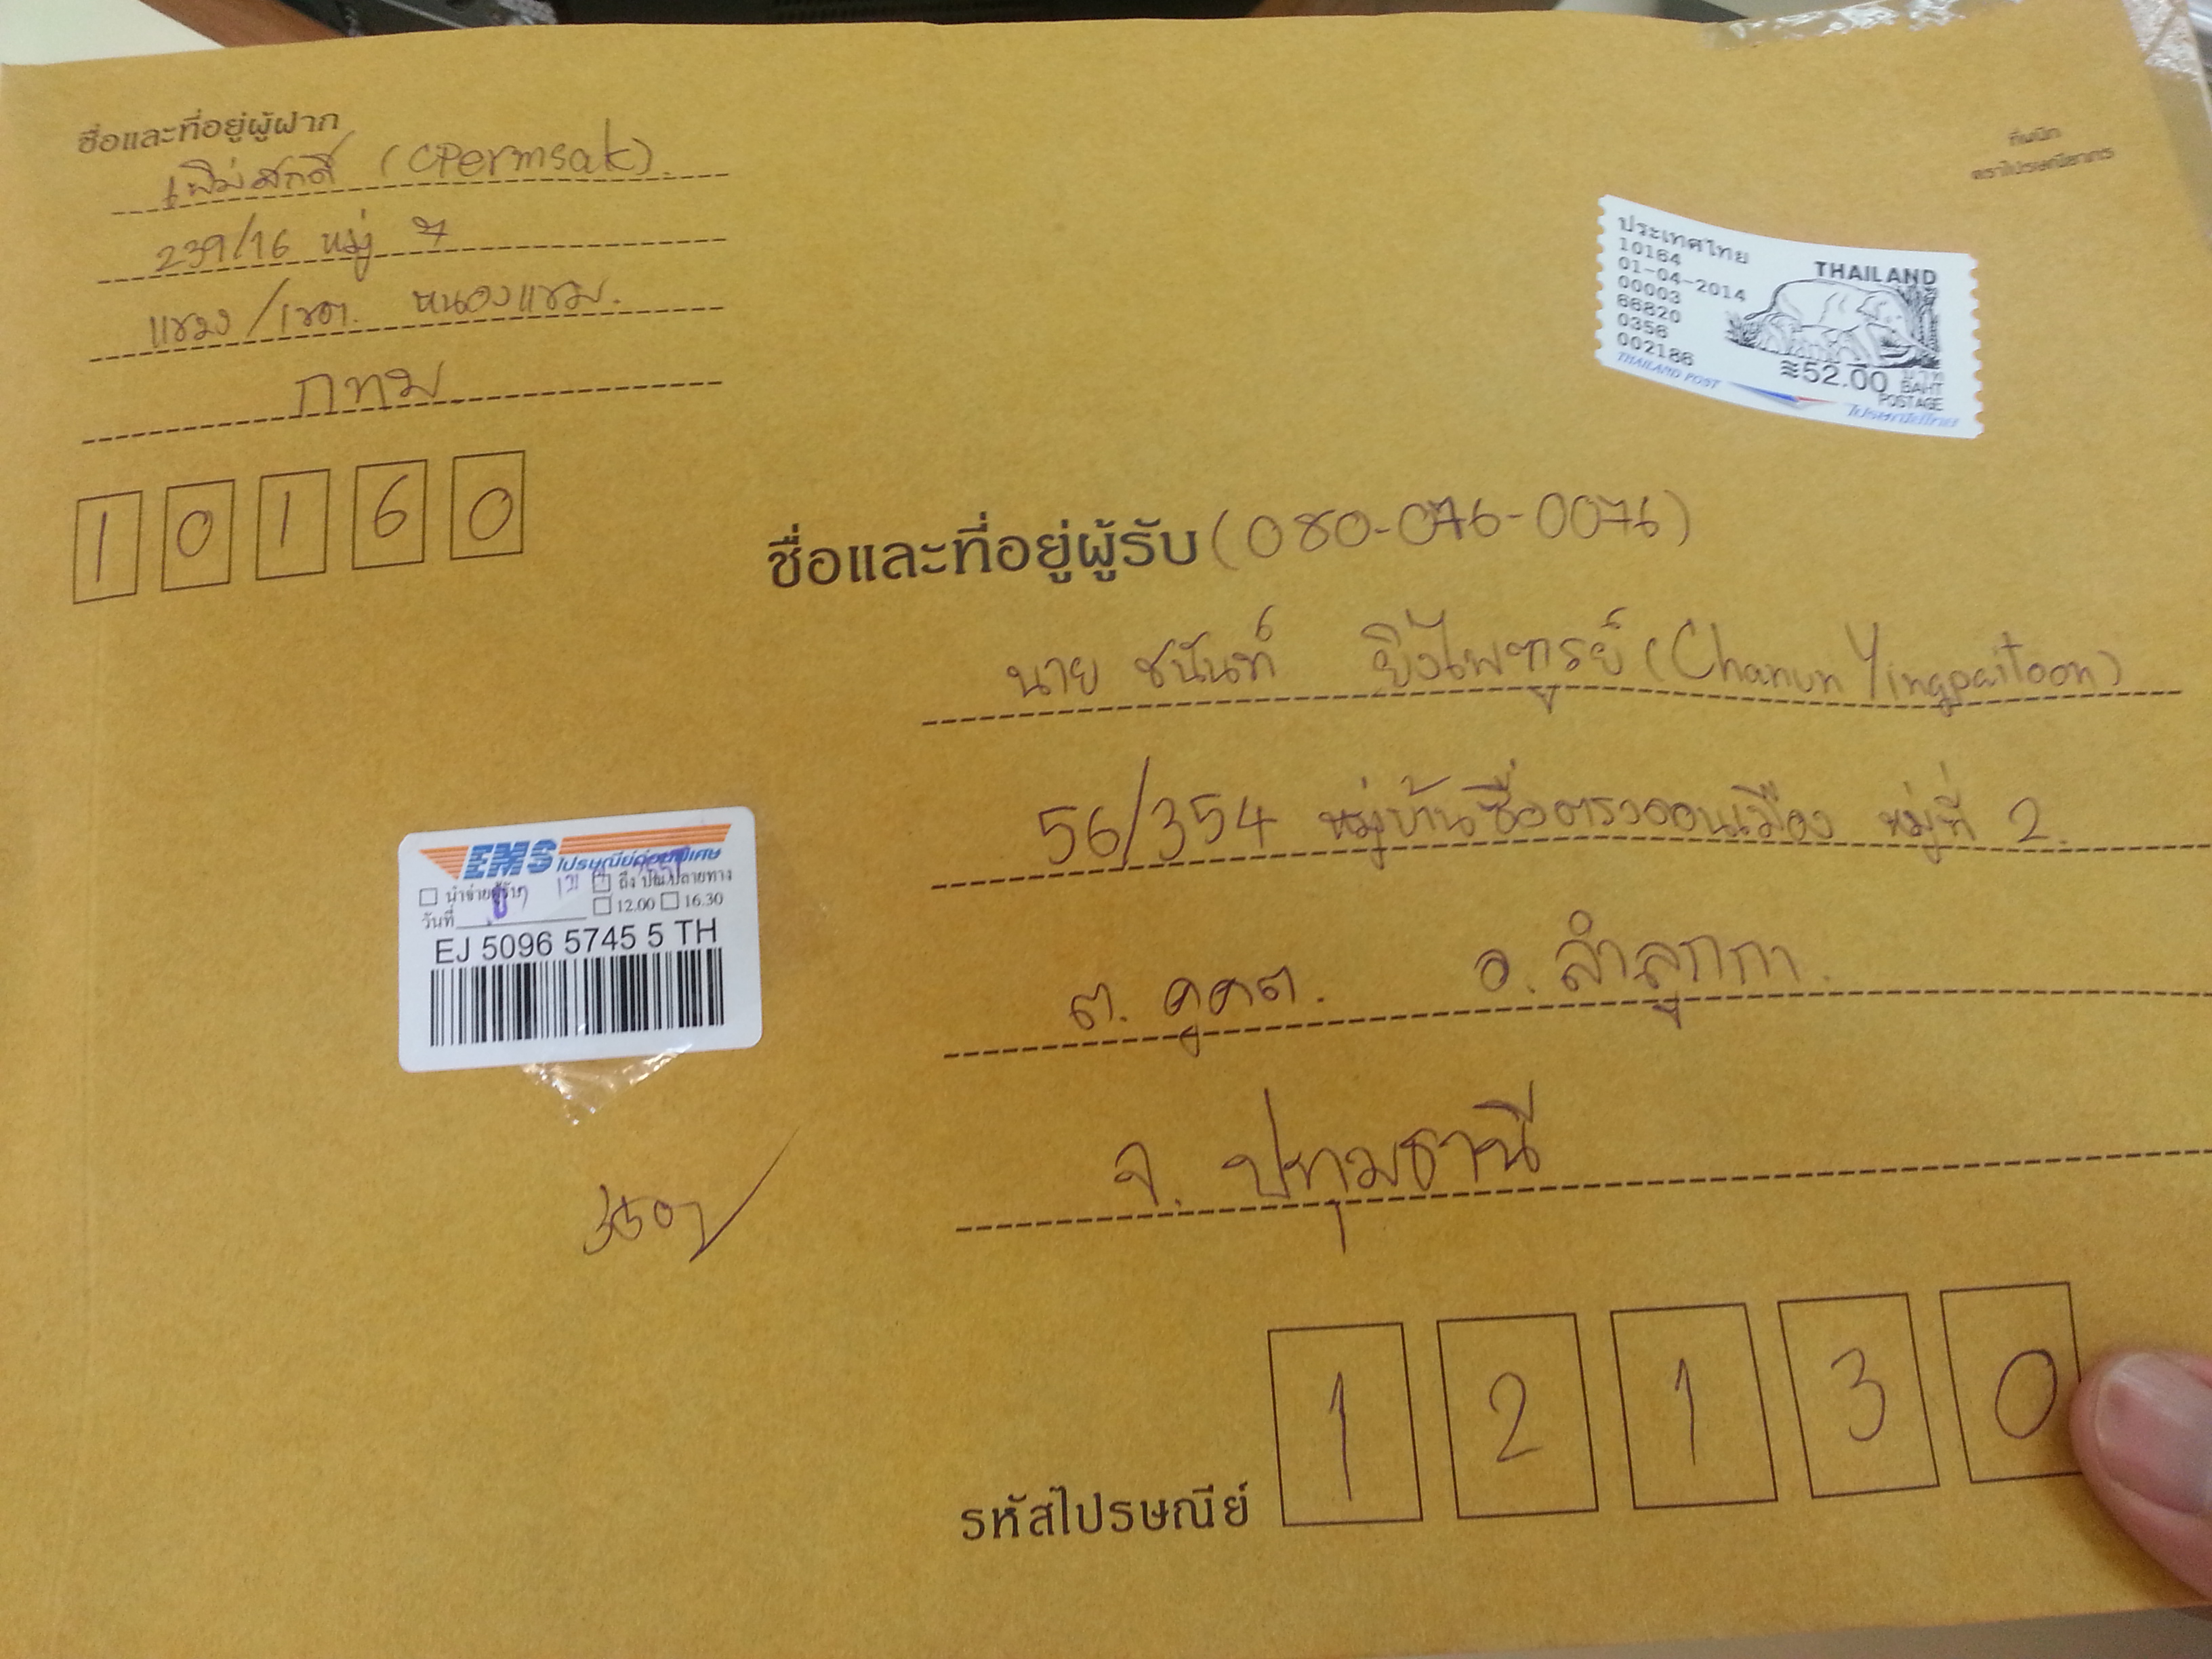 ชื่อและที่อยู่ผู้ฝาก
เพิ่มศักดิ์ (CPermsak)
239/16 หมู่ 7
แขวง/เขต. หนองแขม.
กทม.
10160
ที่ผนึก
ตราไปรษณียากร
ประเทศไทย
10164
01-04-2014
00003
66820
0356
002186
THAILAND
≋52.00 บาท
BAHT
POSTAGE
THAILAND POST ไปรษณีย์ไทย
ชื่อและที่อยู่ผู้รับ (080-076-0076)
นาย ชนันท์ ยิ่งไพฑูรย์ (Chanun Yingpaitoon)
56/354 หมู่บ้านซื่อตรงดอนเมือง หมู่ที่ 2.
ต. คูคต. อ. ลำลูกกา.
จ. ปทุมธานี
EMS ไปรษณีย์ด่วนพิเศษ
นำจ่ายผู้รับ ถึง ปณ.ปลายทาง
วันที่ 12.00 16.30
EJ 5096 5745 5 TH
รหัสไปรษณีย์ 12130